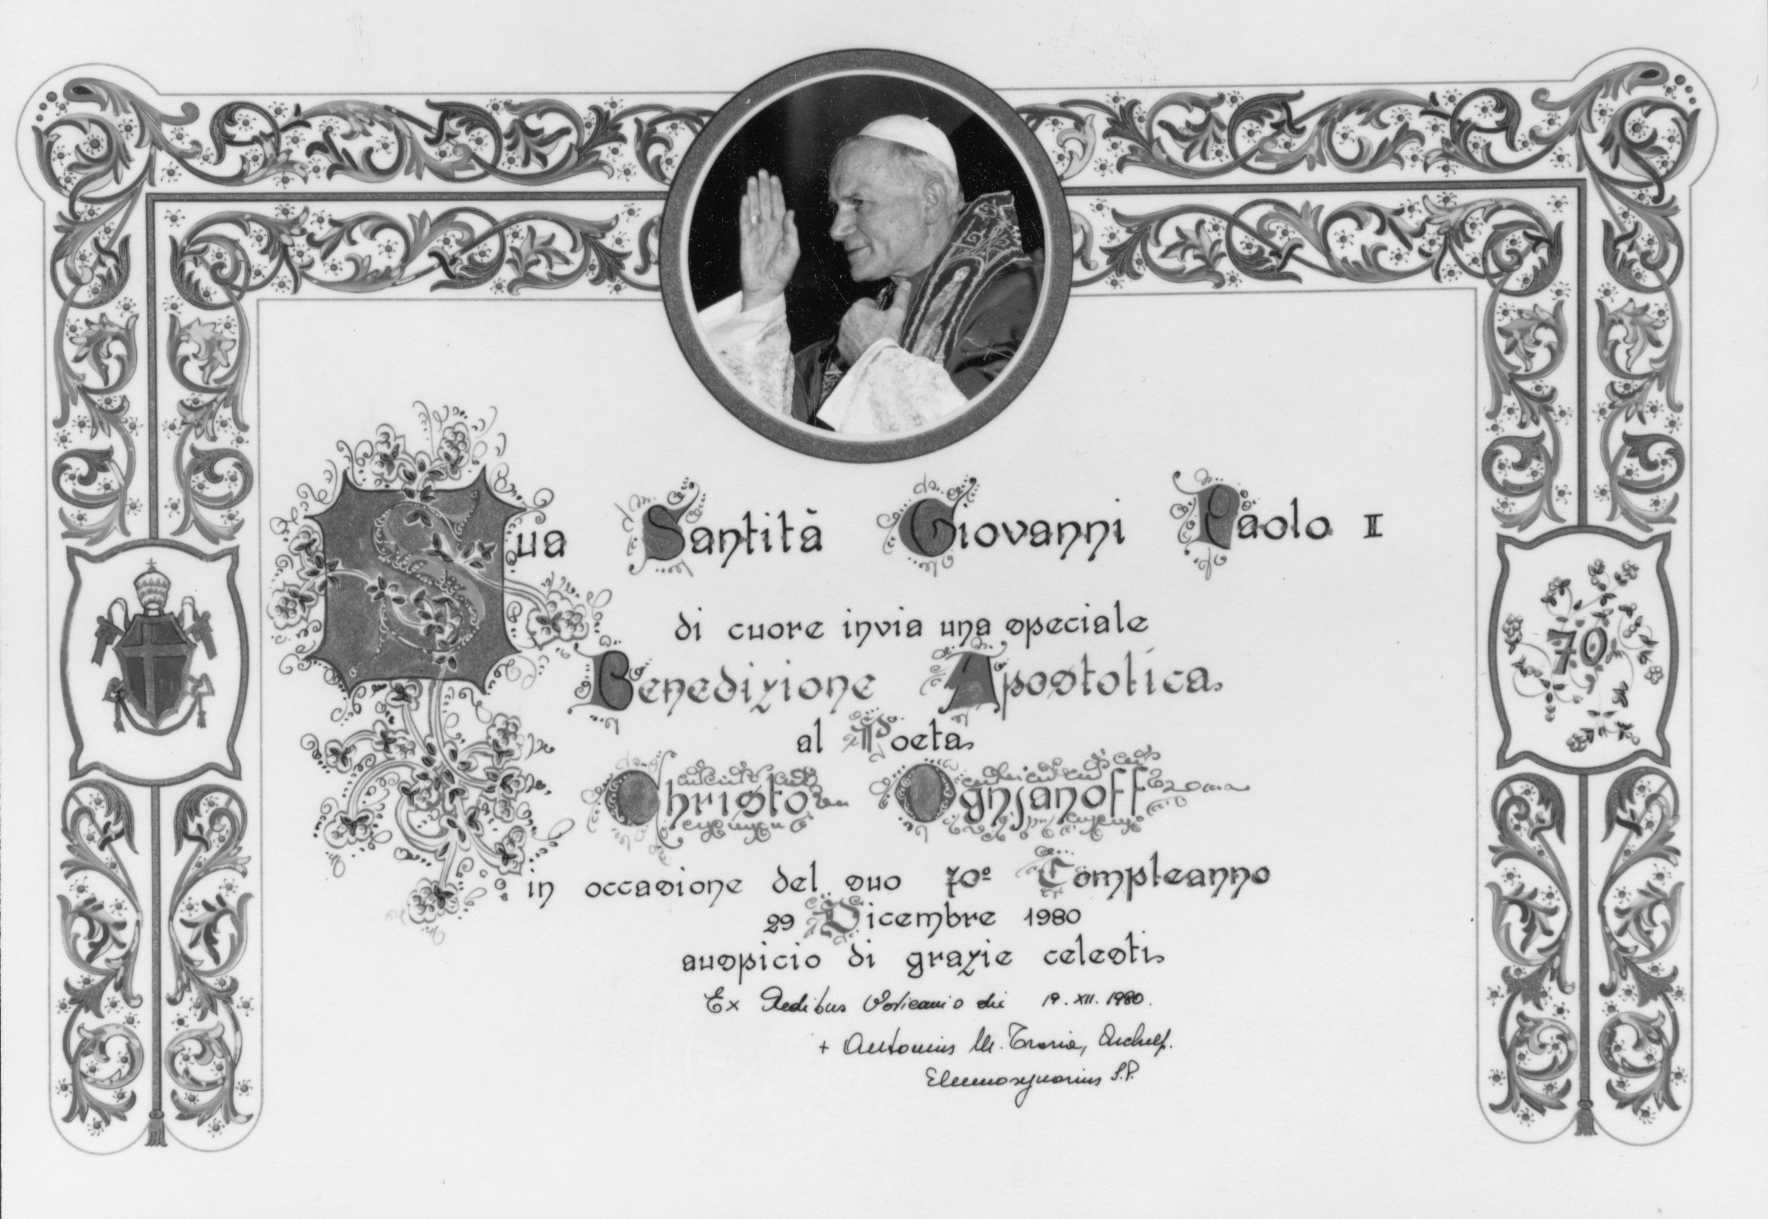 Sua Santità Giovanni Paolo II
di cuore invia una speciale
Benedizione Apostolica
al Poeta
Christo Ognjanoff
in occasione del suo 70º Compleanno
29 Dicembre 1980
auspicio di grazie celesti
Ex Aedibus Vaticanis die 19. XII. 1980.
+ Antonius M. Travia, Archiep.
Elemosynarius S.P.
70